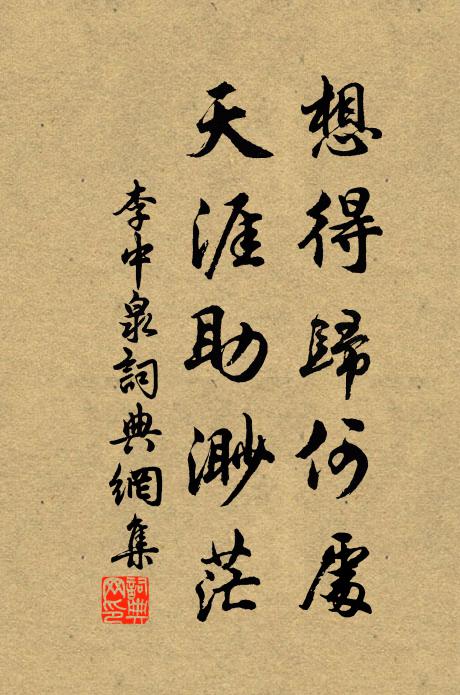 想得歸何處
天涯助渺茫
李中泉詞典網集
詞典網印